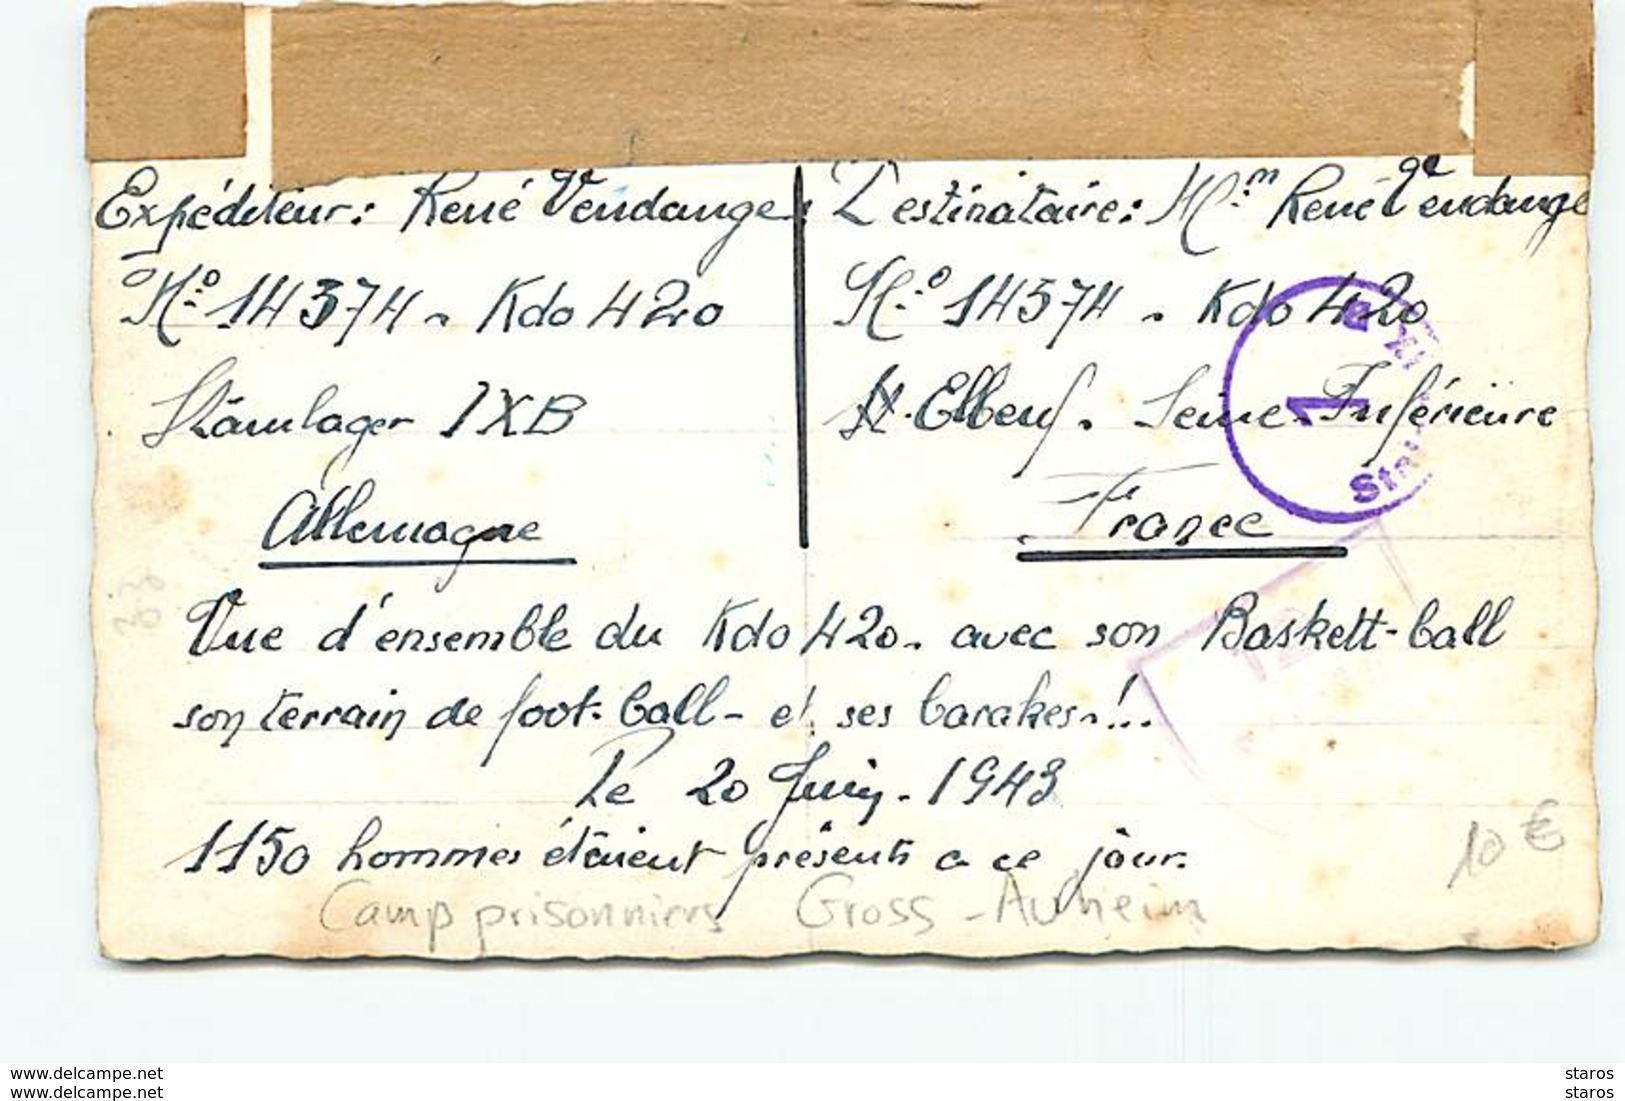 Expéditeur: René Vendange
No 14374 - Kdo 420
Stamlager IXB
Allemagne
Destinataire: Mr René Vendange
No 14374 - Kdo 420
St. Elbeuf. Seine-Inférieure
France
1
Vue d'ensemble du Kdo 420. avec son Baskett-ball
son terrain de foot-ball - et ses barakes.!..
Le 20 Juin. 1943
1150 hommes étaient présents a ce jour.
10 €
Camp prisonniers Gross-Auheim
www.delcampe.net staros
www.delcampe.net staros